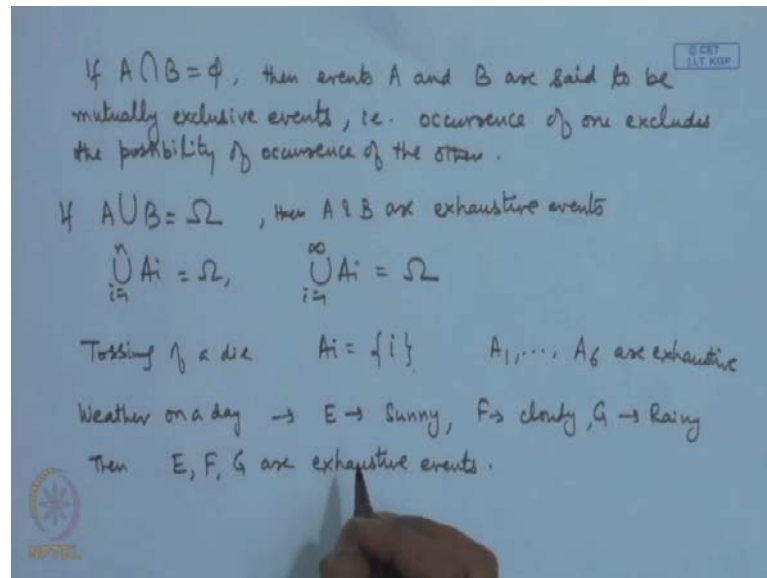 © CET
I.I.T. KGP
If A∩B = ϕ, then events A and B are said to be
mutually exclusive events, i.e. occurrence of one excludes
the possibility of occurrence of the other.
If A∪B = Ω, then A & B are exhaustive events
n ∪ i=1 Ai = Ω, ∞ ∪ i=1 Ai = Ω
Tossing of a die Ai = {i} A1, ..., A6 are exhaustive
Weather on a day → E → Sunny, F → cloudy, G → Rainy
Then E, F, G are exhaustive events.
NPTEL